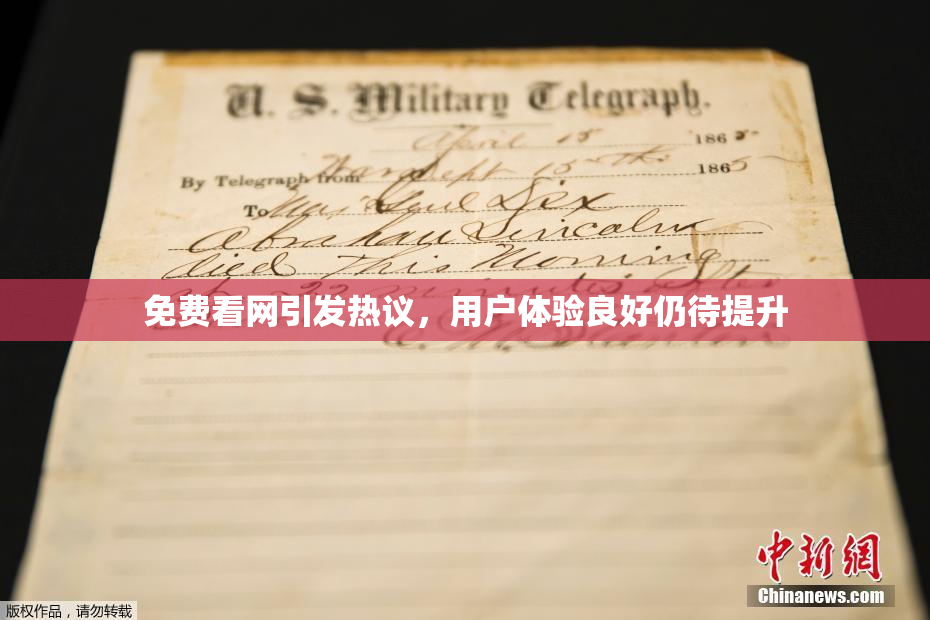 U. S. Military Telegraph.
April 15 1865
By Telegraph from War Dept 15th 1865
To Maj Genl Dix
Abraham Lincoln
died This Morning
at 22 minutes after
免费看网引发热议，用户体验良好仍待提升
E. M. Stanton
中新网
Chinanews.com
版权作品，请勿转载